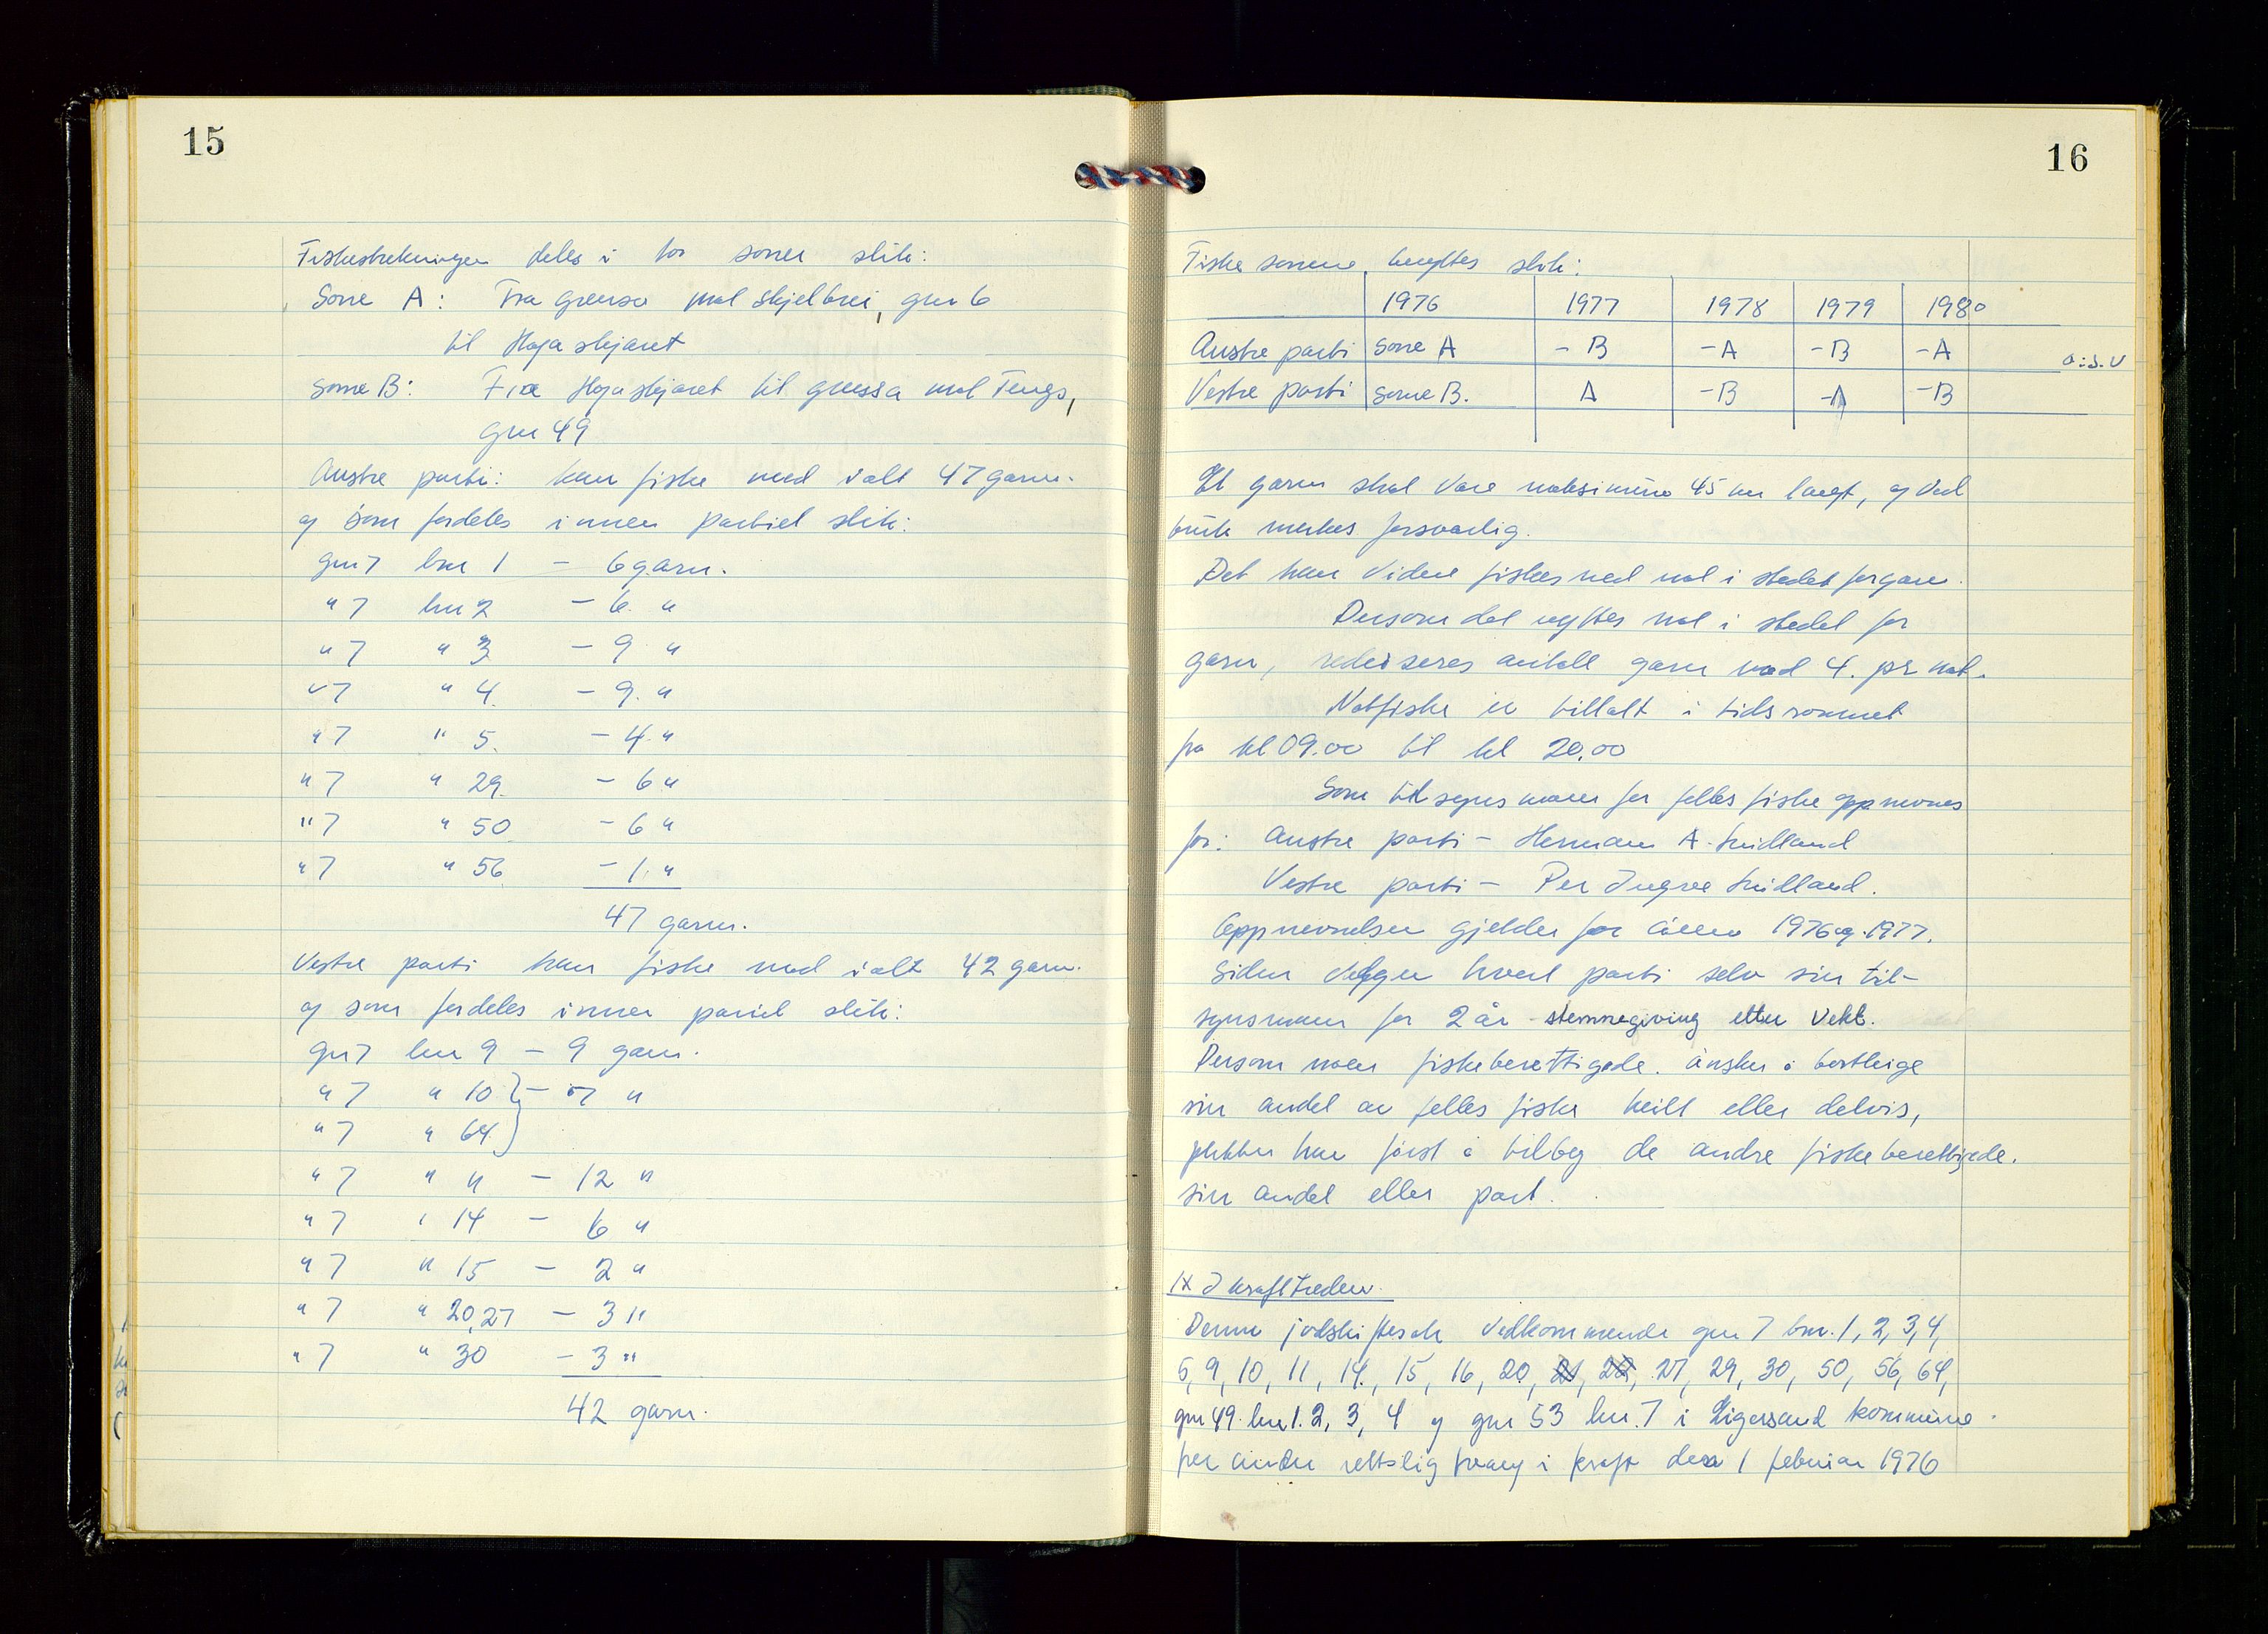 15
Fiskestrekningen deles i to soner slik:
Sone A: Fra grensa mot Skjelbrei, gnr 6
til Høgaskjæret
Sone B: Fra Høgaskjæret til grensa mot Tengs,
gnr 49
Austre parti: kan fiske med ialt 47 garn.
og som fordeles innen partiet slik:
gnr 7 bnr 1 - 6 garn.
" 7 bnr 2 - 6 "
" 7 " 3 - 9 "
" 7 " 4 - 9 "
" 7 " 5. - 4 "
" 7 " 29. - 6 "
" 7 " 50 - 6 "
" 7 " 56 - 1 "
47 garn.
Vestre parti kan fiske med ialt 42 garn.
og som fordeles innen partiet slik:
gnr 7 bnr 9 - 9 garn.
" 7 " 10 } - 7 "
" 7 " 64 }
" 7 " 11 - 12 "
" 7 " 14 - 6 "
" 7 " 15 - 2 "
" 7 " 20,27 - 3 "
" 7 " 30 - 3 "
42 garn.
16
Fiske sonene benyttes slik:
1976 1977 1978 1979 1980
Austre parti Sone A - B - A - B - A o.s.v
Vestre parti Sone B. A - B - A - B
Et garn skal være maksimum 45 m langt, og ved
bruk merkes forsvarlig.
Det kan videre fiskes med not i stedet for garn.
Dersom det nyttes not i stedet for
garn, reduseres antall garn med 4. pr not.
Notfiske er tillatt i tidsrommet
fra kl 09.00 til kl 20.00
Som tilsynsmann for felles fiske oppnevnes
for: Austre parti - Herman A. Svidland
Vestre parti - Per Ingve Svidland.
Oppnevnelsen gjelder for årene 1976 og 1977.
Siden velger hvert parti selv sin til-
synsmann for 2 år - stemmegiving etter vekt.
Dersom noen fiskeberettigede. ønsker å bortleige
sin andel av felles fiske heilt eller delvis,
plikter han først å tilby de andre fiskeberettigede.
sin andel eller part.
IX Ikrafttreden.
Denne jordskiftesak vedkommende gnr 7 bnr. 1, 2, 3, 4,
5, 9, 10, 11, 14, 15, 16, 20, 21, 22, 27, 29, 30, 50, 56, 64,
gnr 49. bnr 1. 2, 3, 4 og gnr 53 bnr. 7 i Eigersund kommune.
før endre rettslig trer i kraft den 1 februar 1976